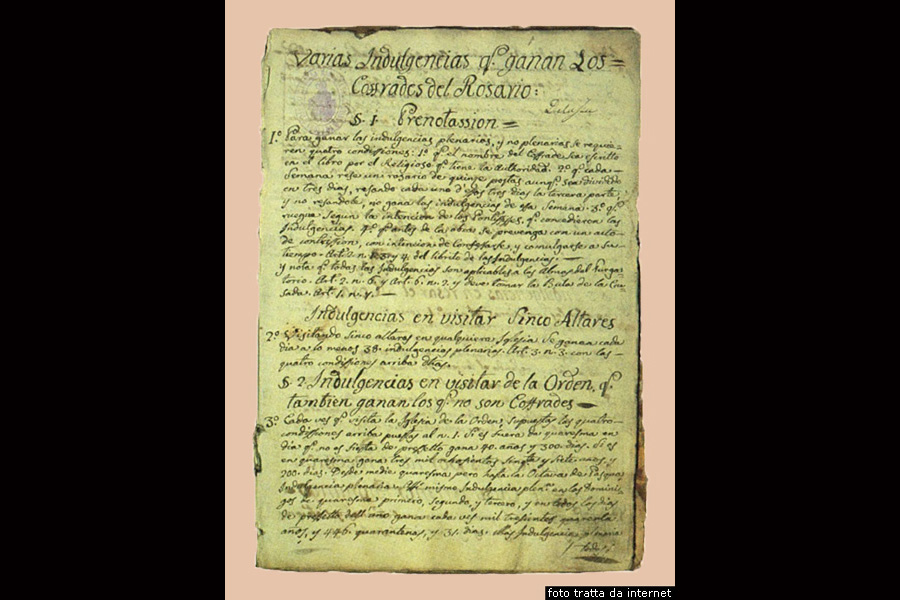 Varias Indulgencias q.e gánan Los=
Coffrades del Rosario:
§. 1. Prenotassion =
1.º Para ganar las indulgencias plenarias, y no plenarias se requie-
ren quatro condissiones: 1.ª q.e el nombre del Coffrade sea escrito
en el libro por el Religioso q.e tiene la authoridad. 2.ª q.e cada
Semana rese un rosario de quinze postas aunq.e sea dividido
en tres dias, resando cada uno d'esos tres dias la tercera parte;
y no resandole, no gana las indulgencias de esa Semana. 3.ª q.e
ruegue segun la intencion de los Pontifises, q.e concedieron las
Indulgencias. 4.ª q.e antes de la obra se prevenga con un acto
de contrission, con intencion de Confessarse, y comulgarse a su
tiempo. Art. 2. n. 3. y 4. del librito de las Indulgencias.
y nota q.e todas las Indulgencias son aplicables a las Almas del Purga
torio. Art. 2. n. 6. y Art. 6. n. 2. y deve tomar la Bula de la Cru-
sada. Art. 1. n. 4.
Indulgencias en visitar Sinco Altares
2.º Visitando Sinco altares en qualquiera Iglesia se ganan cada
dia a lo menos 38. indulgencias plenarias. Art. 3. n. 3. con las
quatro condissiones arriba dhas.
§. 2. Indulgencias en visitar de la Orden, q.e
tambien ganan los q.e no son Coffrades
3.º Cada ves q.e visita la Iglesia de la Orden, supuestas las quatro
condissiones arriba puestas al n. 1. Si es fuera de quaresma en
dia q.e no es fiesta de presepto gana 40. años y 300. dias. Si es
en quaresma gana tres mil ochosientos y siete años, y
200. dias. Desde media quaresma pero hasta la Octava de Pasqua
Indulgencia plenaria. mismo Indulgencia plen.a en las Domini-
cas de quaresma primero, segundo, y tercero, y en todos los dias
de presepto del año gana cada ves mil tresientos quarenta
años, y 446. quarentenas, y 31. dias. Indulgencia
foto tratta da internet